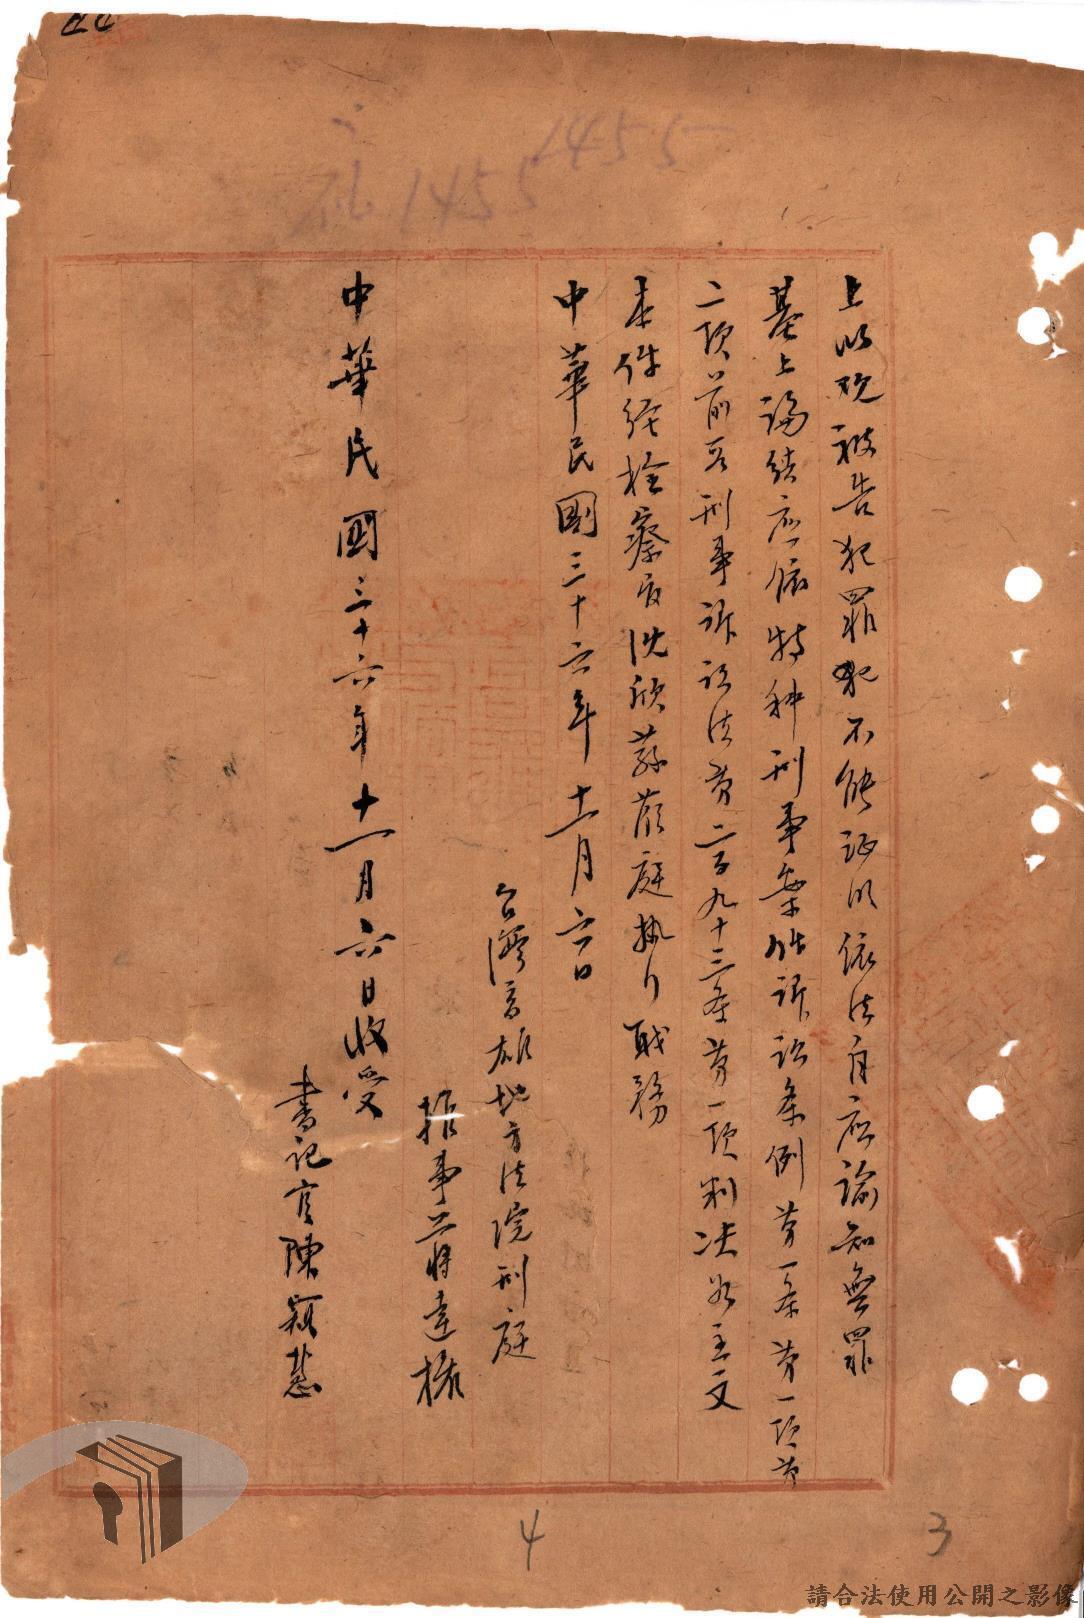 1455
1455
上以觀被告犯罪犯不能証明依法自应諭知無罪
基上論結应依特种刑事案件訴訟条例第一条第一項第
二項前段刑事訴訟法第二百九十三条第一項判决如主文
本件經檢察官沈欣蓀蒞庭執行職務
中華民國三十六年十一月六日
台灣高雄地方法院刑庭
推事蔣達權
中華民國三十六年十一月六日收受
書記官陳穎慧
4
3
請合法使用公開之影像